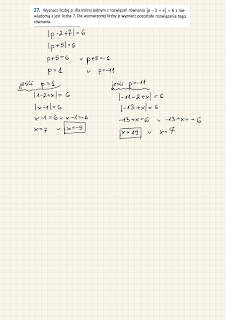 27. Wyznacz liczbę p, dla której jednym z rozwiązań równania |p – 2 + x| = 6 z nie-
wiadomą x jest liczba 7. Dla wyznaczonej liczby p wyznacz pozostałe rozwiązania tego
równania.
|p-2+7|=6
|p+5|=6
p+5=6 ∨ p+5=-6
p=1 ∨ p=-11
jeśli p=1
|1-2+x|=6
|x-1|=6
x-1=6 ∨ x-1=-6
x=7 ∨ x=-5
jeśli p=-11
|-11-2+x|=6
|-13+x|=6
-13+x=6 ∨ -13+x=-6
x=19 ∨ x=7